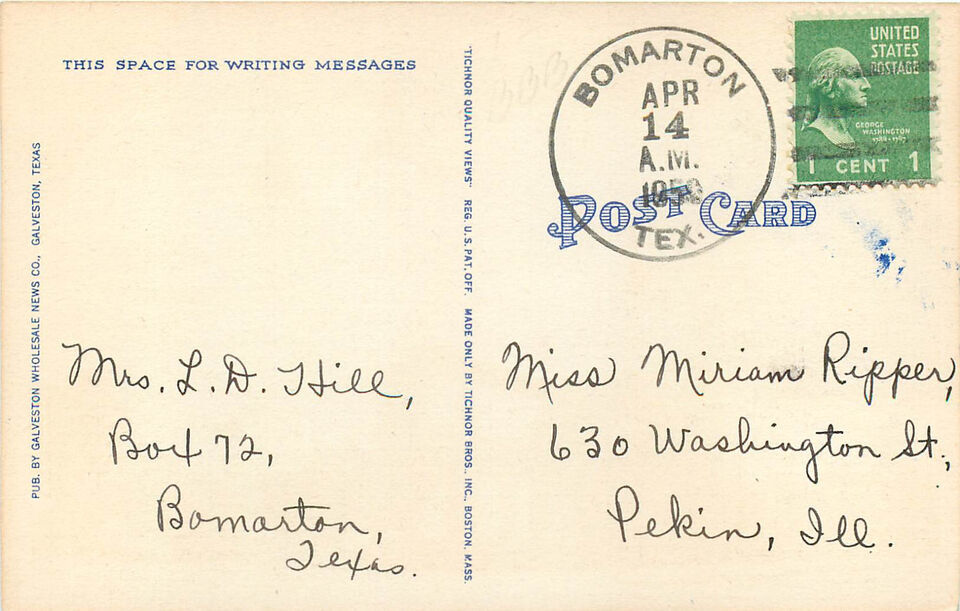 THIS SPACE FOR WRITING MESSAGES
PUB. BY GALVESTON WHOLESALE NEWS CO., GALVESTON, TEXAS
"TICHNOR QUALITY VIEWS" REG. U.S. PAT. OFF. MADE ONLY BY TICHNOR BROS., INC., BOSTON, MASS.
BOMARTON
APR
14
A.M.
TEX.
UNITED
STATES
POSTAGE
GEORGE
WASHINGTON
1 CENT 1
POST CARD
Mrs. L. D. Hill,
Box 72,
Bomarton,
Texas.
Miss Miriam Ripper,
630 Washington St.,
Pekin, Ill.